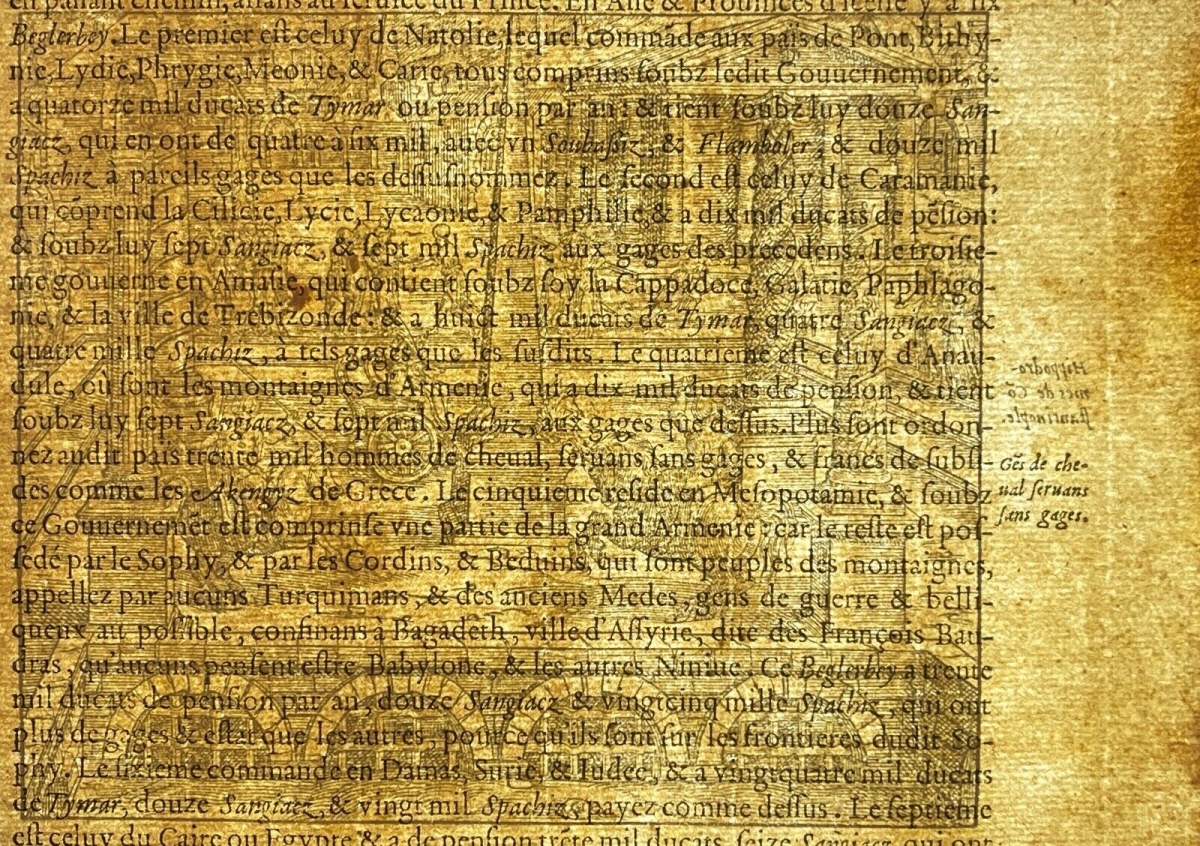 en passant chemin, allans au seruice du Prince. En Asie & Prouinces d'icelle y a six
Beglerbey. Le premier est celuy de Natolie, lequel commãde aux païs de Pont, Bithy-
nie, Lydie, Phrygie, Meonie, & Carie, tous comprins soubz ledit Gouuernement, &
a quatorze mil ducats de Tymar ou pension par an: & tient soubz luy douze San-
giacz, qui en ont de quatre à six mil, auec vn Soubaßiz, & Flamboler, & douze mil
Spachiz à pareils gages que les dessusnommez. Le second est celuy de Caramanie,
qui cõprend la Cilicie, Lycie, Lycaonie, & Pamphilie, & a dix mil ducats de pẽsion:
& soubz luy sept Sangiacz, & sept mil Spachiz aux gages des precedens. Le troisie-
me gouuerne en Amasie, qui contient soubz soy la Cappadoce, Galatie, Paphlago-
nie, & la ville de Trebizonde: & a huict mil ducats de Tymar, quatre Sangiacz, &
quatre mille Spachiz, à tels gages que les susdits. Le quatrieme est celuy d'Anau-
dule, où sont les montaignes d'Armenie, qui a dix mil ducats de pension, & tient
soubz luy sept Sangiacz, & sept mil Spachiz, aux gages que dessus. Plus sont ordon-
nez audit païs trente mil hommes de cheual, seruans sans gages, & francs de subsi-
des comme les Akengyz de Grece. Le cinquieme reside en Mesopotamie, & soubz
ce Gouuernemẽt est comprinse vne partie de la grand Armenie: car le reste est pos-
sedé par le Sophy, & par les Cordins, & Beduins, qui sont peuples des montaignes,
appellez par aucuns Turquimans, & des anciens Medes, gens de guerre & belli-
queux au possible, confinans à Bagadeth, ville d'Assyrie, dite des François Bau-
dras, qu'aucuns pensent estre Babylone, & les autres Niniue. Ce Beglerbey a trente
mil ducats de pension par an, douze Sangiacz & vingtcinq mille Spachiz, qui ont
plus de gages & estat que les autres, pource qu'ils sont sur les frontieres dudit So-
phy. Le sixieme commande en Damas, Surie, & Iudee, & a vingtquatre mil ducats
de Tymar, douze Sangiacz, & vingt mil Spachiz, payez comme dessus. Le septieme
est celuy du Caire ou Egypte & a de pension trẽte mil ducats, seize Sangiacz, qui ont
Hippodro-
mes de Cõ
stantinople.
Gẽs de che-
ual seruans
sans gages.